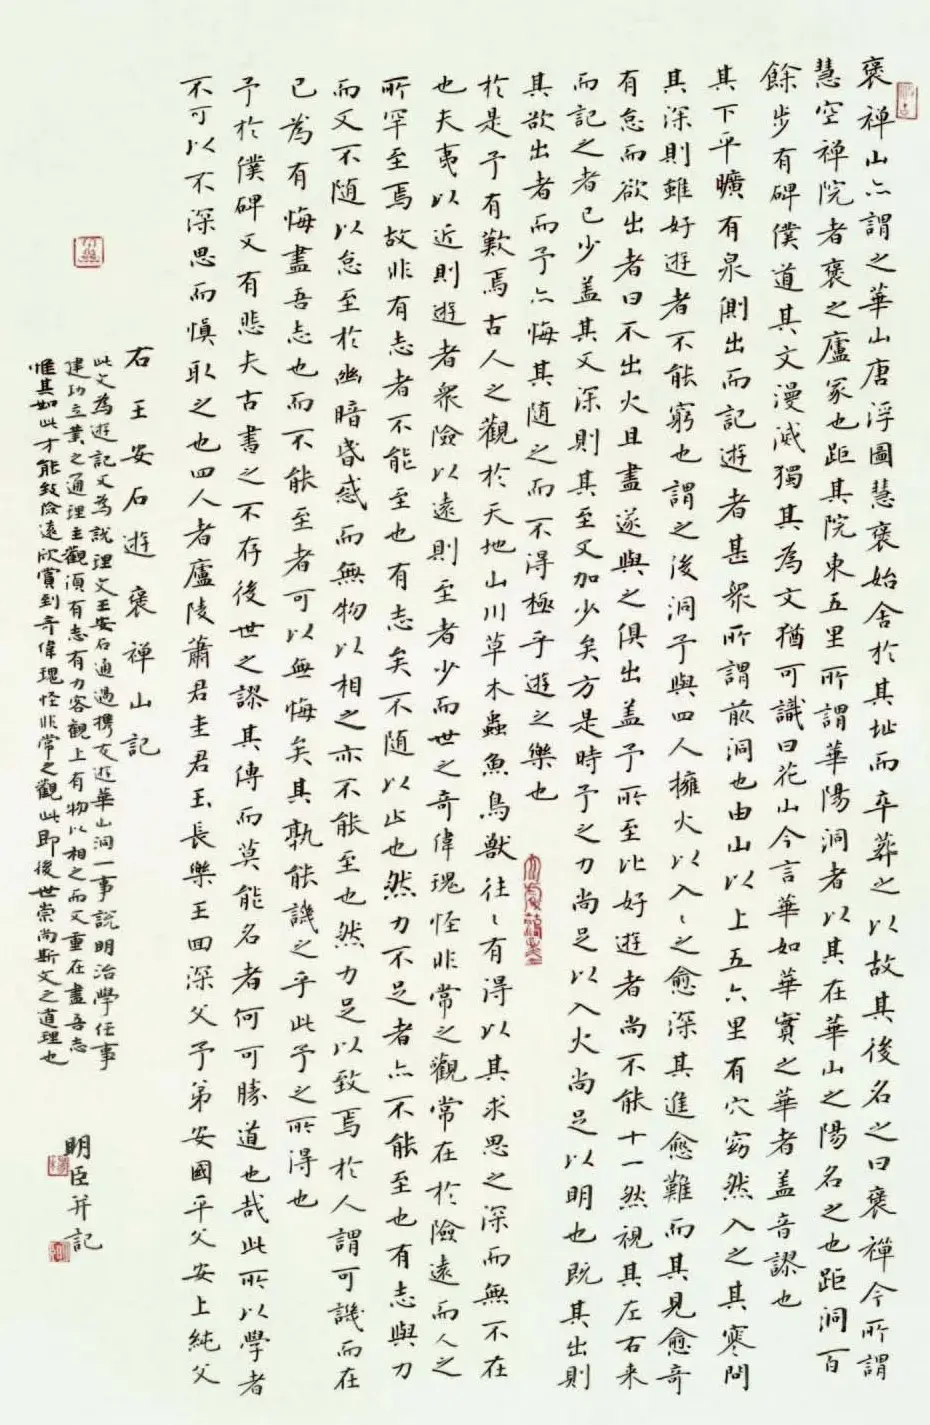 褒禅山亦謂之華山唐浮圖慧褒始舍於其址而卒葬之以故其後名之曰褒禪今所謂
慧空禅院者褒之廬冢也距其院東五里所謂華陽洞者以其在華山之陽名之也距洞百
餘步有碑僕道其文漫滅獨其為文猶可識曰花山今言華如華實之華者盖音謬也
其下平曠有泉側出而記遊者甚衆所謂前洞也由山以上五六里有穴窈然入之甚寒問
其深則雖好遊者不能窮也謂之後洞予與四人擁火以入〻之愈深其進愈難而其見愈奇
有怠而欲出者曰不出火且盡遂與之俱出盖予所至比好遊者尚不能十一然視其左右来
而記之者已少盖其又深則其至又加少矣方是時予之力尚足以入火尚足以明也既其出則
其欲出者而予亦悔其随之而不得極乎遊之樂也
於是予有歎焉古人之觀於天地山川草木蟲魚鳥獸往〻有得以其求思之深而無不在
也夫夷以近則遊者衆險以遠則至者少而世之奇偉瑰怪非常之觀常在於險遠而人之
所罕至焉故非有志者不能至也有志矣不随以止也然力不足者亦不能至也有志與力
而又不随以怠至於幽暗昏惑而無物以相之亦不能至也然力足以致焉於人謂可譏而在
已為有悔盡吾志也而不能至者可以無悔矣其孰能譏之乎此予之所得也
予於僕碑又有悲夫古書之不存後世之謬其傳而莫能名者何可勝道也哉此所以學者
不可以不深思而慎取之也四人者廬陵蕭君圭君玉長樂王回深父予弟安國平父安上純父
右王安石遊褒禅山記
此文為遊記又為說理文王安石通過携友遊華山洞一事說明治學任事
建功立業之通理主觀須有志有力客觀上有物以相之而又重在盡吾志
惟其如此才能致險遠欣賞到奇偉瑰怪非常之觀此即後世崇尚斯文之道理也
明臣并記